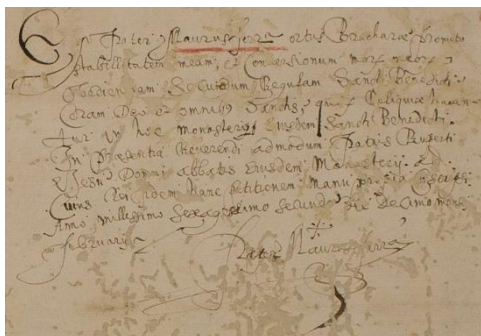 Ego frater Maurus ferre ortus Bracharæ Promito
stabillitatem meam, et Conversionum morum meorum
secundum Regulam Sancti Benedicti
Coram Deo et omnibus Sanctis, quorum Reliquiæ haben
tur in hoc monasterio Eiusdem Sancti Benedicti.
In præsentia Reverendi admodum Patris Ruperti
à Jesu Domni abbatis Eiusdem Monasterij.
Cuius Rei fidem hanc petitionem manu propria
Anno millesimo Sexagesimo secundo die Decimo mens
februarij
frater Maurus